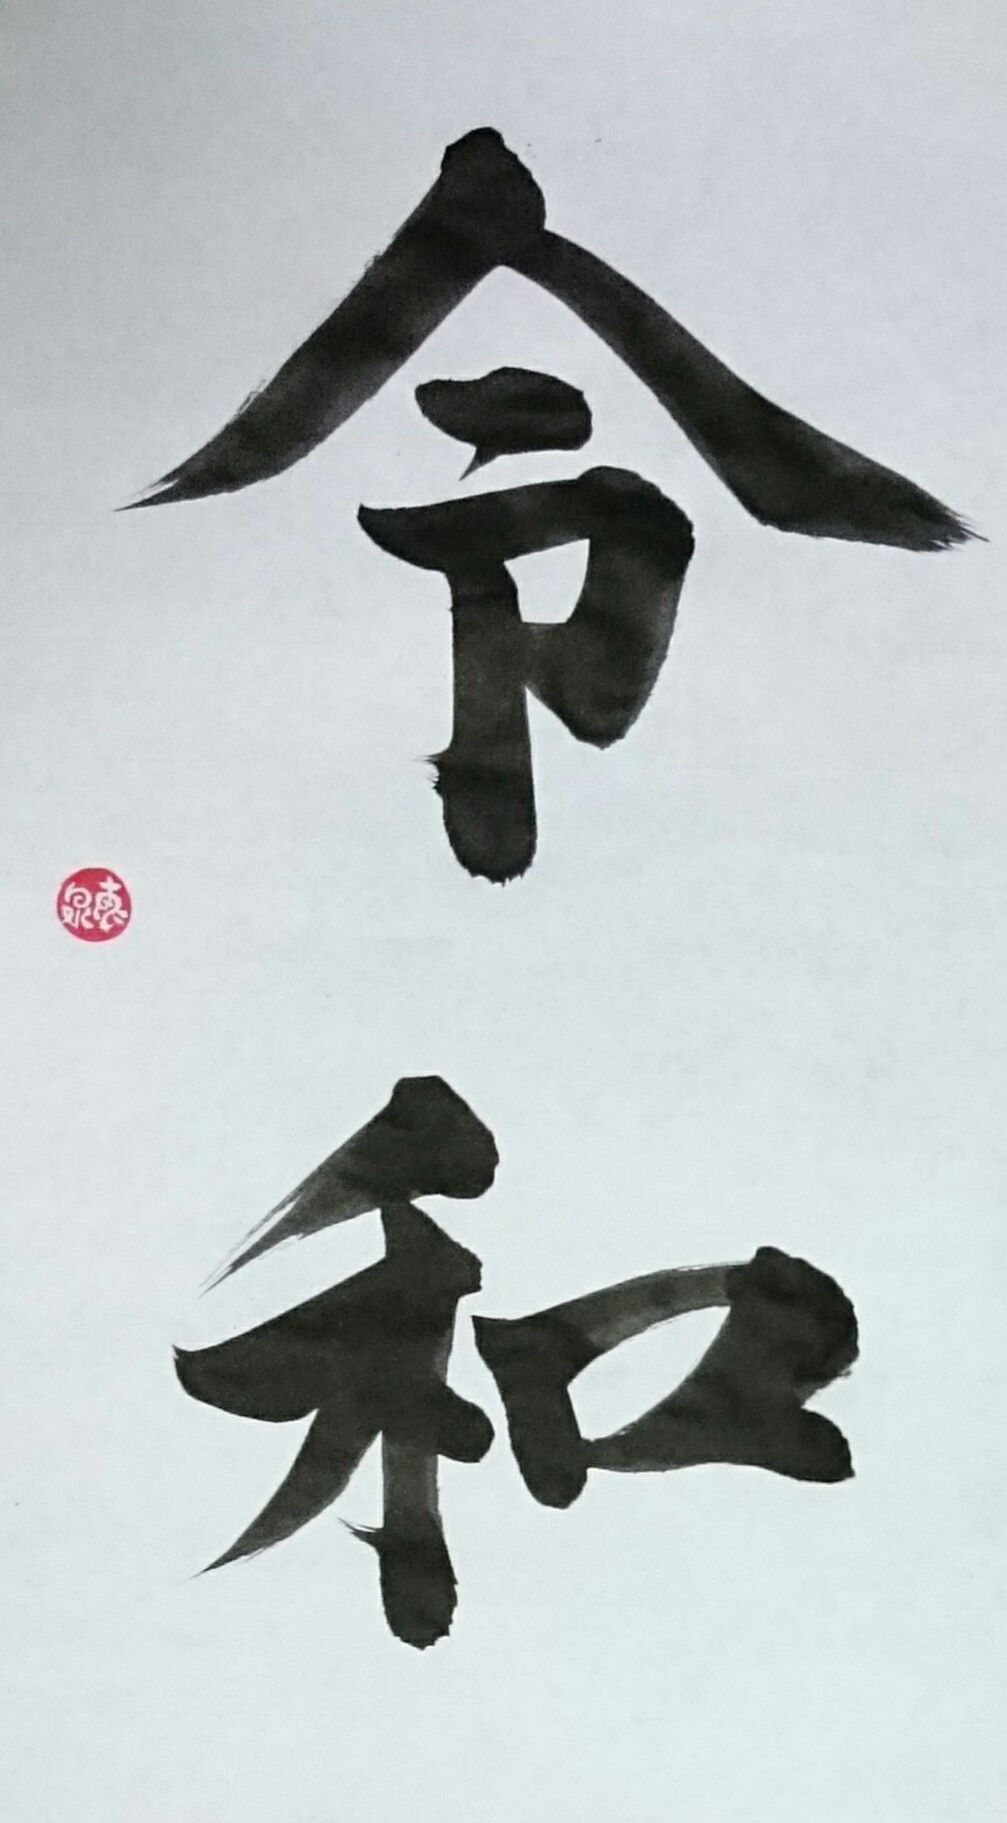 令和
恵泉